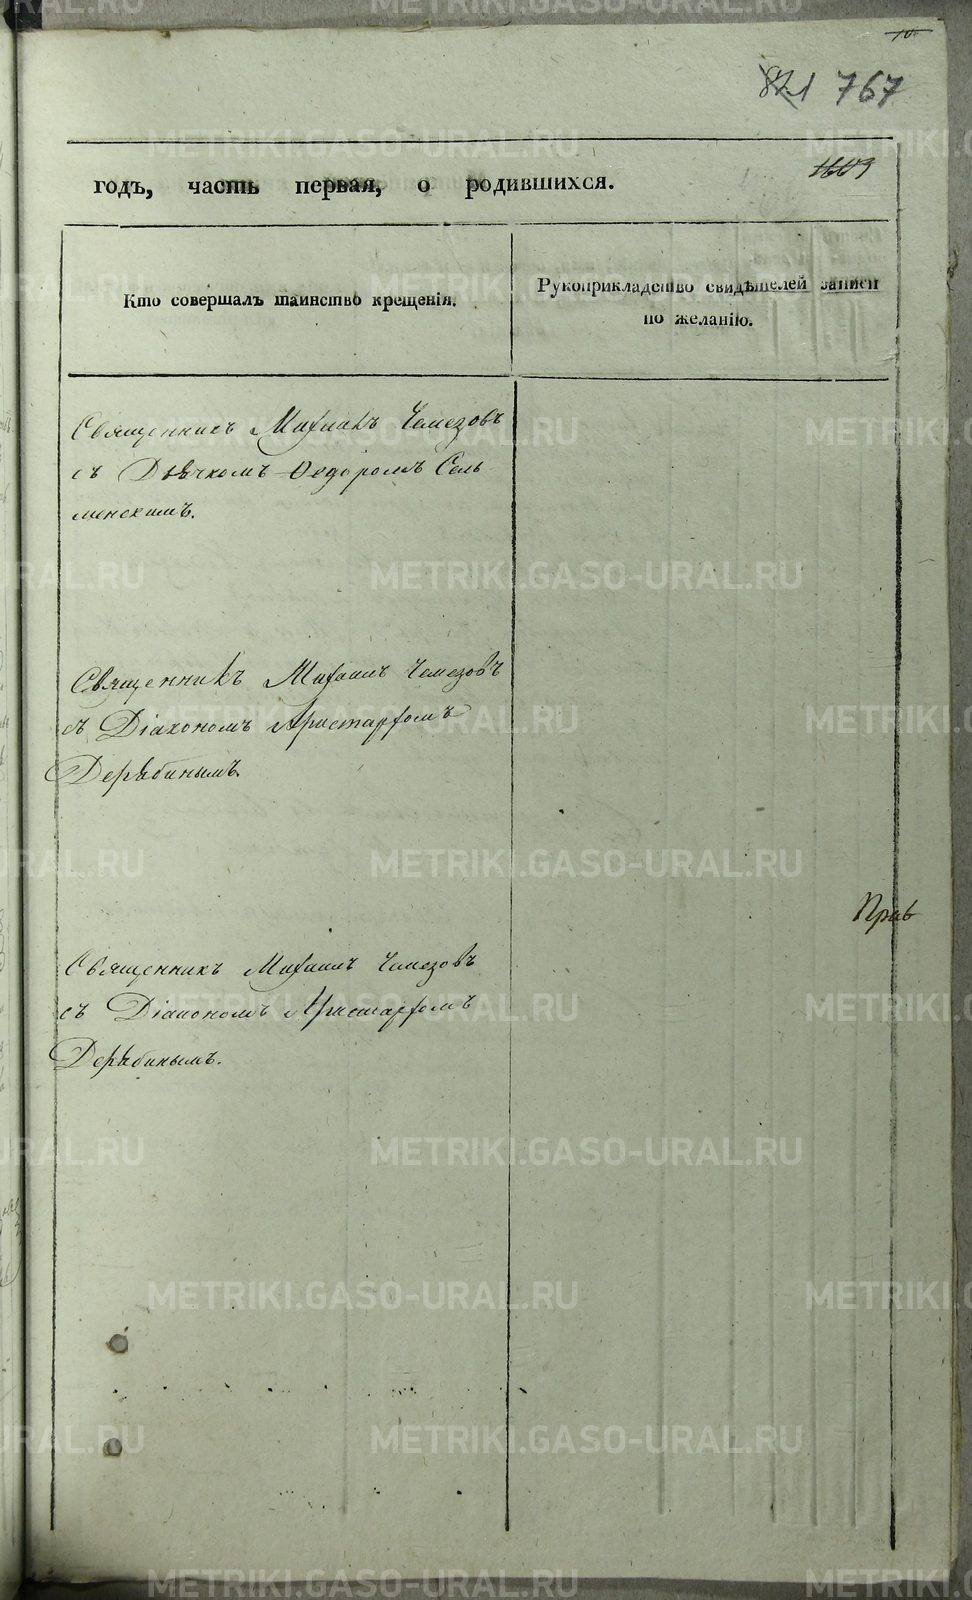 767
1609
годъ, часть первая, о родившихся.
Кто совершалъ таинство крещенія.
Рукоприкладство свидѣтелей записи
по желанію.
Священникъ Михаилъ Чемезовъ
съ Дьячкомъ Ѳедоромъ Сель
менскимъ.
Священникъ Михаилъ Чемезовъ
съ Діакономъ Аристархомъ
Дерябинымъ.
Прав
Священникъ Михаилъ Чемезовъ
съ Діакономъ Аристархомъ
Дерябинымъ.
METRIKI.GASO-URAL.RU